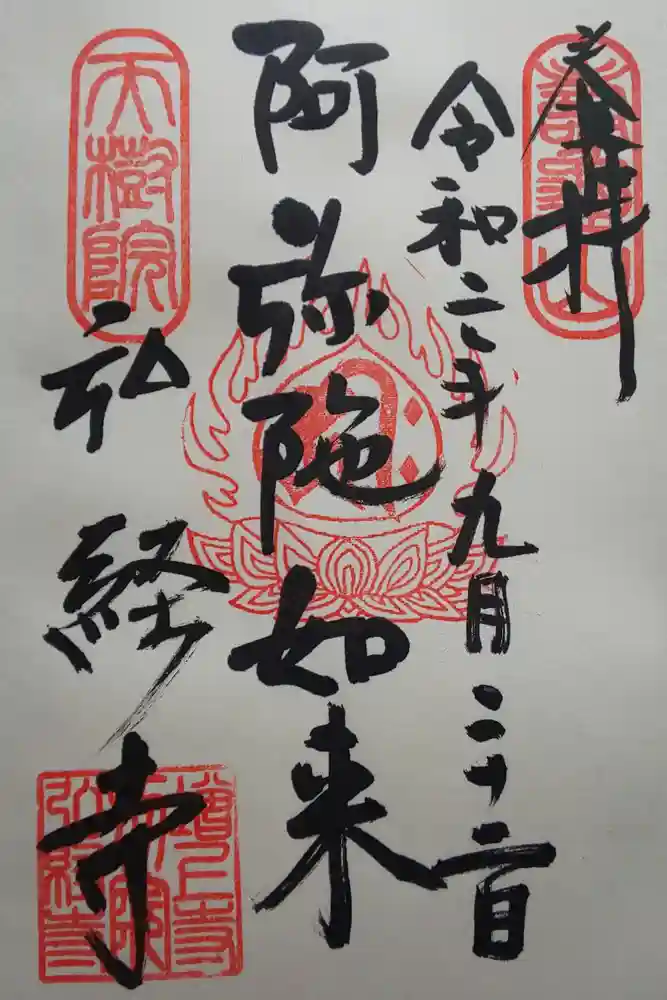 奉拝
令和二年九月二十二日
阿弥陀如来
天樹院
弘経寺